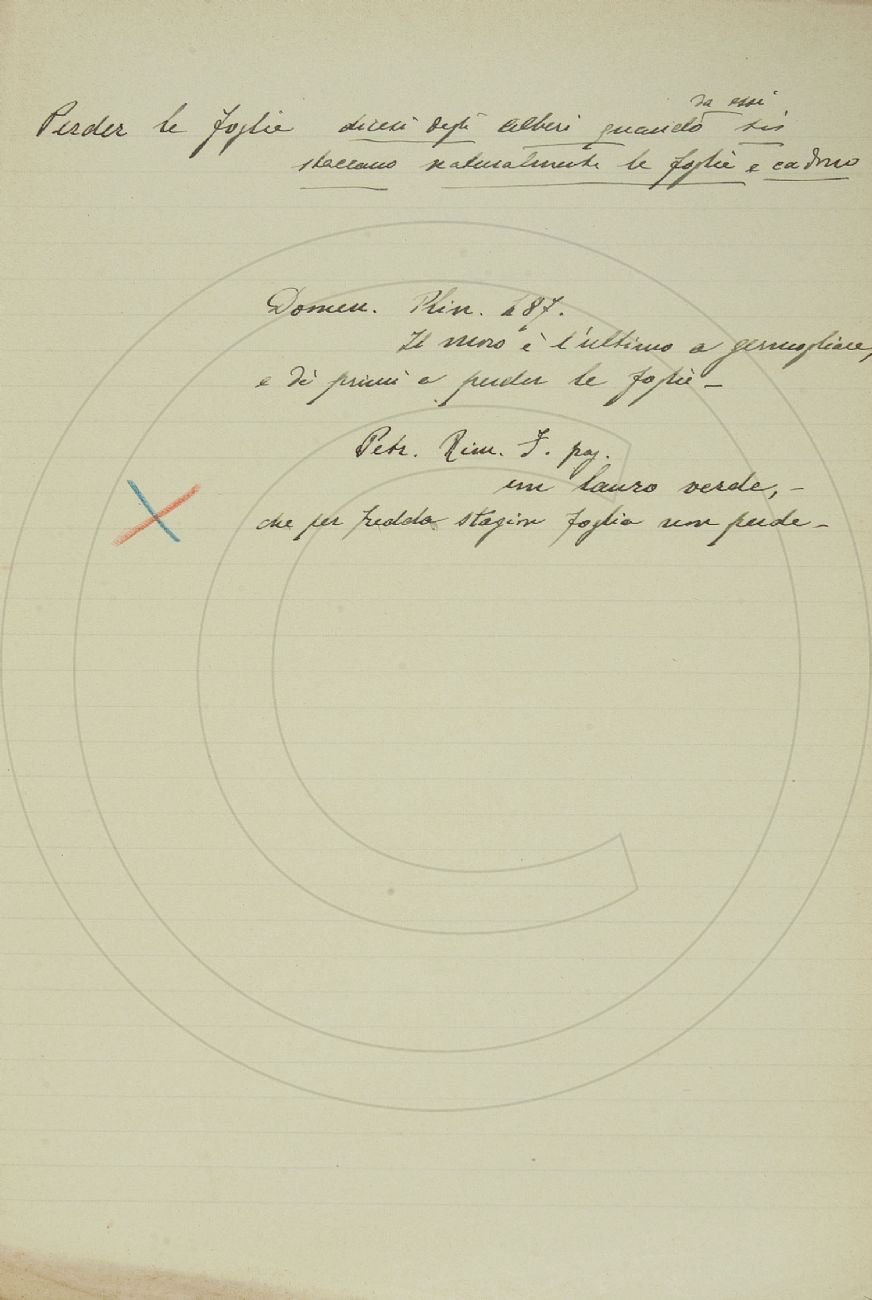 da essi
Perder le foglie dicesi degli alberi quando si
staccano naturalmente le foglie e cadono
Domen. Plin. 487.
Il moro è l'ultimo a germogliare,
e di primi a perder le foglie –
Petr. Rim. I. pag.
un lauro verde, –
che per fredda stagion foglia non perde –